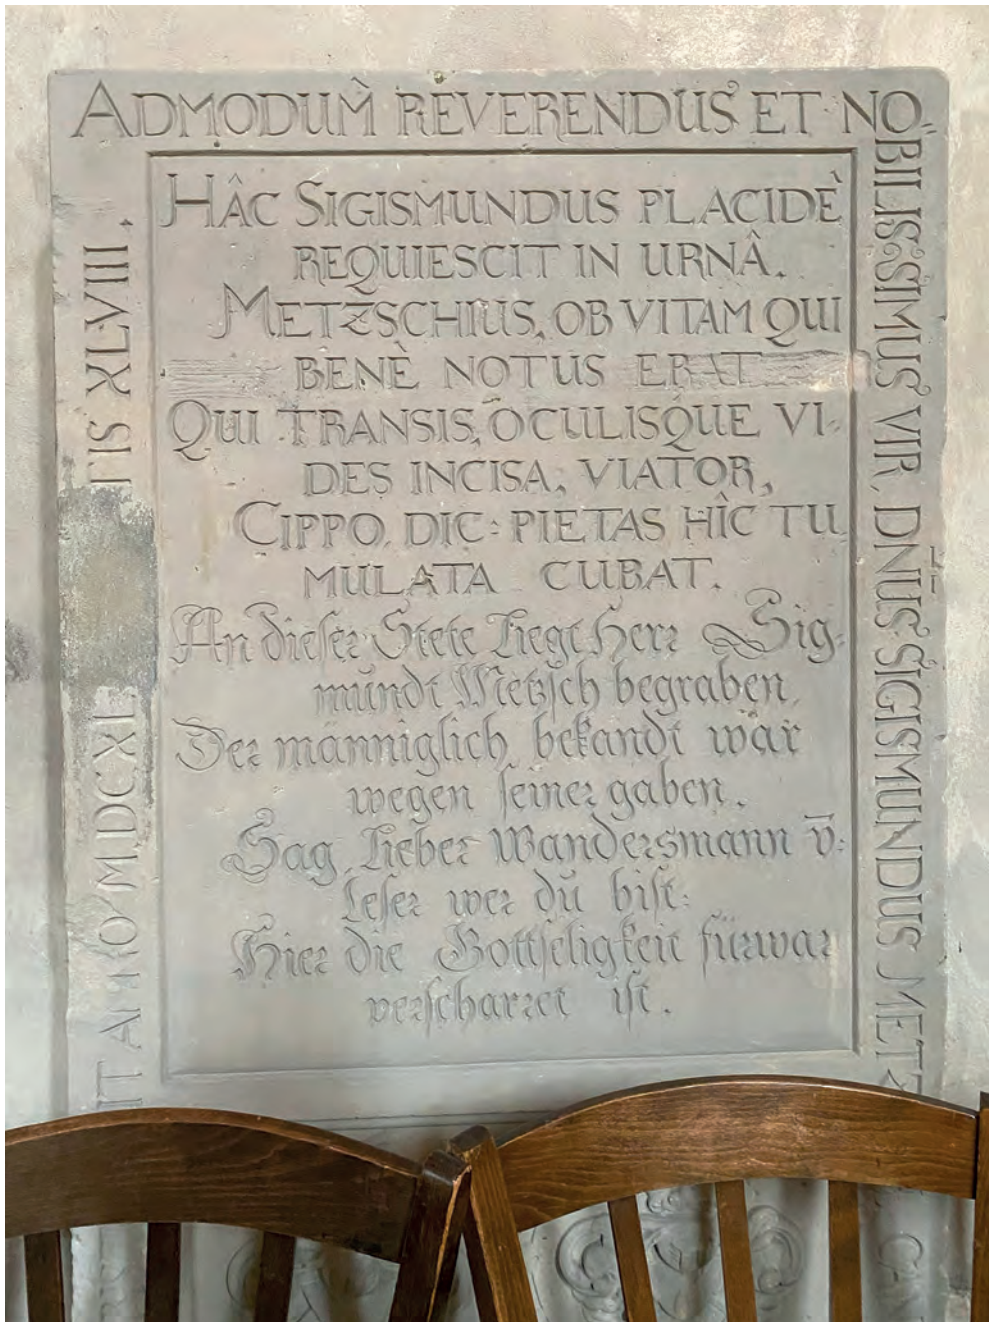 ADMODUM̀ REVERENDUS ET NO=
BILISSIMUS VIR, DN̄US SIGISMUNDUS METZ
IT ANNO M.DCXL
TIS XLVIII.
HÂC SIGISMUNDUS PLACIDÈ
REQUIESCIT IN URNÂ.
METZSCHIUS, OB VITAM QUI
BENÈ NOTUS ERAT
QUI TRANSIS, OCULISQUE VI-
DES INCISA, VIATOR,
CIPPO, DIC: PIETAS HÎC TU
MULATA CUBAT.
An dieser Stete Liegt Herr Sig-
mundt Metzsch begraben,
Der männiglich bekandt war
wegen seiner gaben.
Sag, Lieber Wandersmann v̄:
Leser wer du bist:
Hier die Gottseligkeit fürwar
verscharret ist.